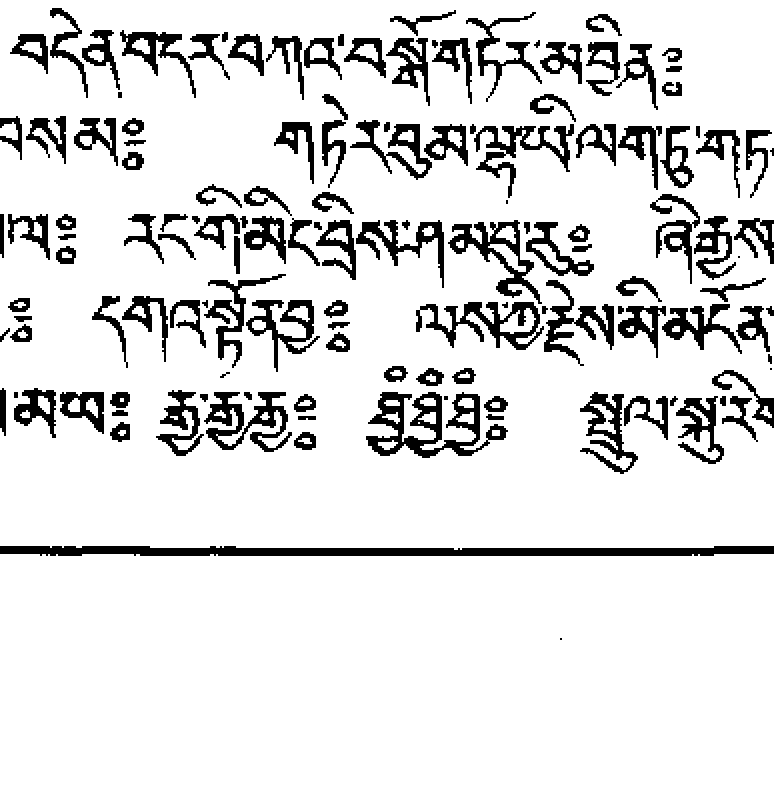 བདེན་བདར་བཀའ་བསྒོ་གཏོར་མ་བྱིན༔
བསམ༔ གཏེར་བུམ་ལྷ་ཡི་ལག་ཏུ་གཏ
ལ༔ རང་གི་མིང་བྲིས་ཤམ་བུ་རུ༔ ཞི་རྒྱས
༔ དགའ་སྟོན་བྱ༔ ལས་ཀྱི་རྗེས་མི་མངོན་
མ་ཡ༔ རྒྱ་རྒྱ་རྒྱ༔ ཐྱཾ་ཐྱཾ་ཐྱཾ༔ སྤྲུལ་སྐུ་རིག